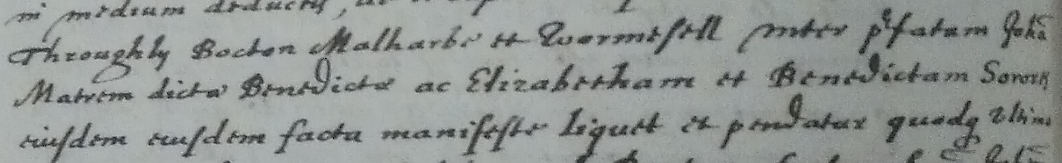 in medium deductis, ac
Throughly Bocton Malharbe et Wormesell inter p'fatam Joha
Matrem dictæ Benedictæ ac Elizabetham et Benedictam Soror
eiusdem eiusdem facta manifeste liquet et pendatur quodq ultim